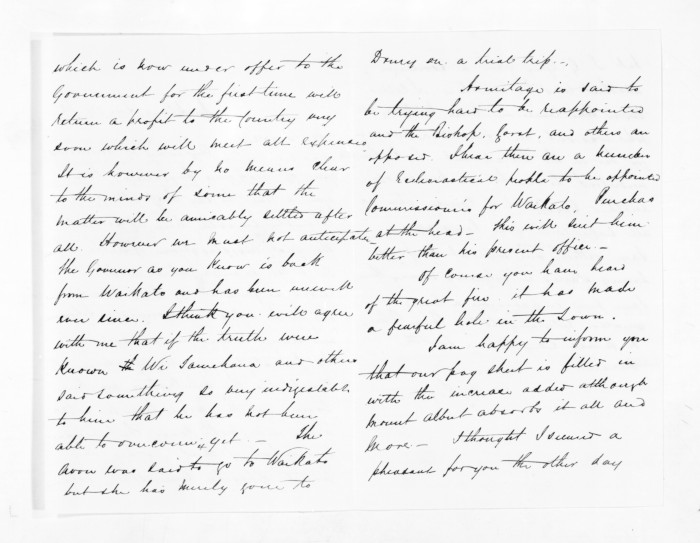 which is now under offer to the
Government for the first time will
return a profit to the Country very
soon which will meet all expenses
It is however by no means clear
to the minds of some that the
matter will be amicably settled after
all. However we must not anticipate
The Govenor as you know is back
from Waikato and has been unwell
ever since. I think you will agree
with me that if the truth were
known Wi Tamehana and others
said something so very indigestable
to him that he has not been
able to overcome yet. — The
Avon was said to go to Waikato
but she has merely gone to
Drury on a trial trip —
Armitage is said to
be trying hard to be reappointed
and the Bishop, Gorst, and others are
opposed. I hear there are a number
of Ecclesiastical to be appointed
Commissioners for Waikato, Purchas
at the head — this will suit him
better than his present office —
Of course you have heard
of the great fire it has made
a fearful hole in the Town.
I am happy to inform you
that our pay sheet is filled in
with the increase added although
Mount Albert absorbs it all and
more — I thought I secured a
pheasant for you the other day